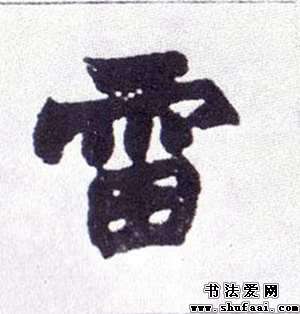 雷
书法爱网
www.shufaai.com